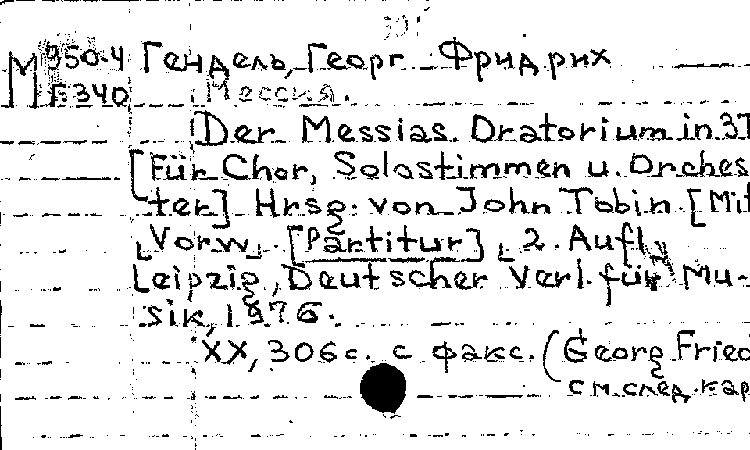 М 950-4 Гендель, Георг Фридрих
Г 340 Мессия.
Der Messias. Oratorium in 3T
[Für Chor, Solostimmen u. Orches
ter] Hrsg. von John Tobin. [Mit
Vorw. [Partitur] 2. Aufl.
Leipzig, Deutscher Verl. für Mu-
sik, 1976.
XX, 306 с. с факс. (Georg Fried
см. след. кар